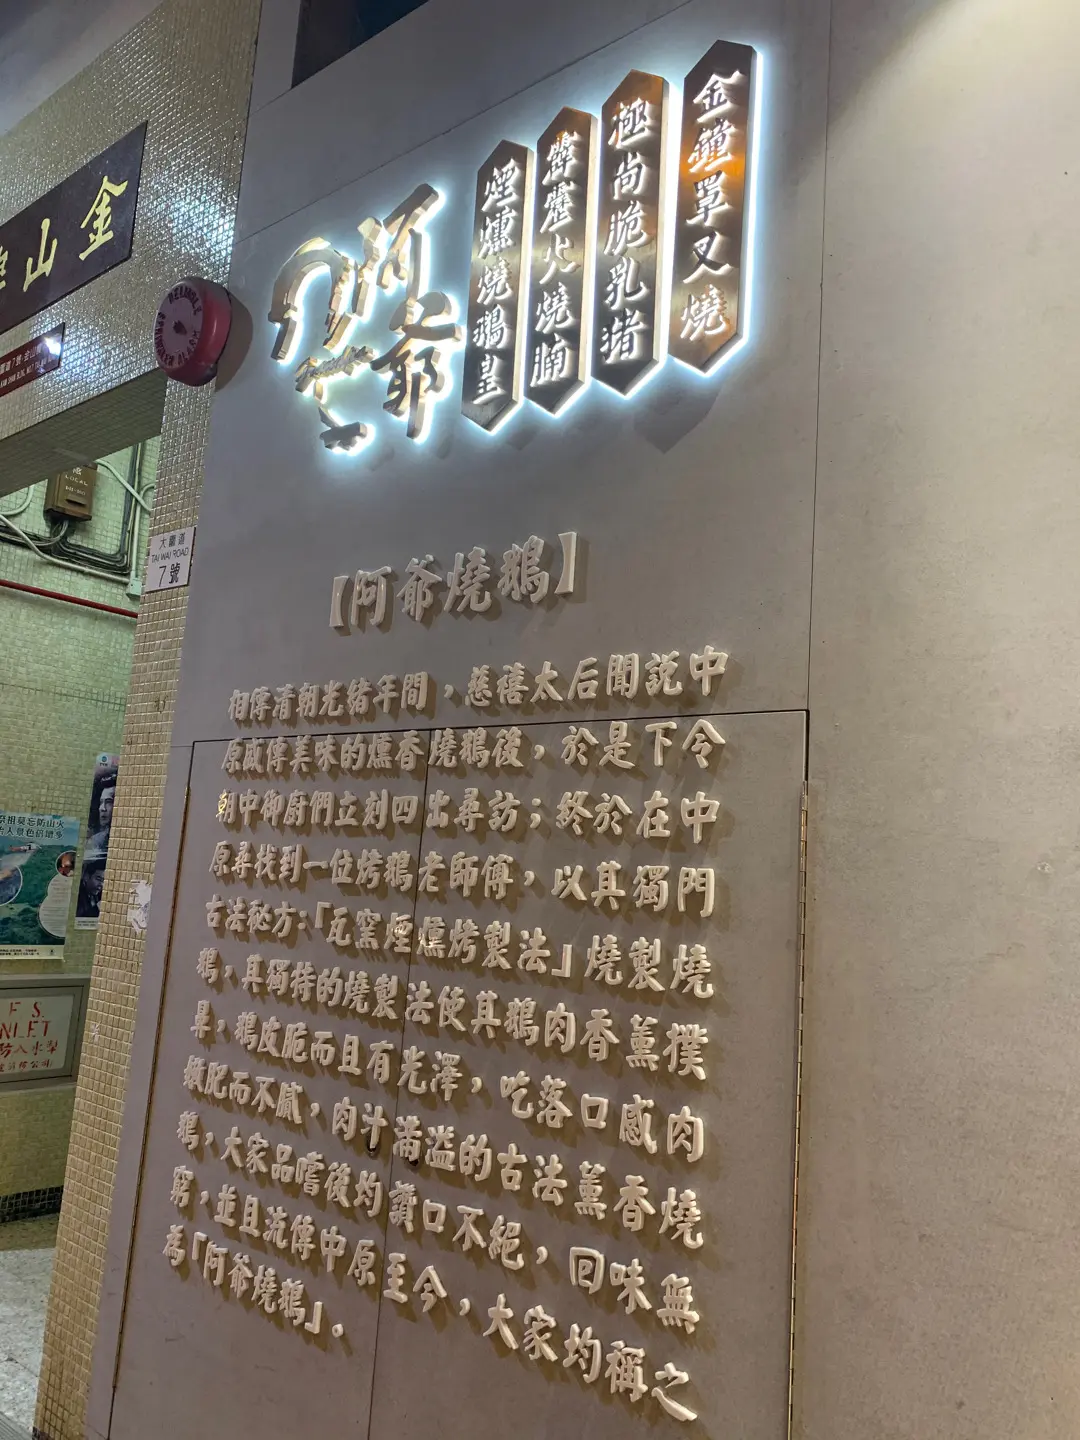 金山
阿爺
煙燻燒鵝皇
霹靂火燒腩
極尚脆乳豬
金鐘罩叉燒
大圍道
TAI WAI ROAD
7號
【阿爺燒鵝】
相傳清朝光緒年間，慈禧太后聞說中
原盛傳美味的燻香燒鵝後，於是下令
朝中御廚們立刻四出尋訪；終於在中
原尋找到一位烤鵝老師傅，以其獨門
古法秘方：「瓦窯煙燻烤製法」燒製燒
鵝，其獨特的燒製法使其鵝肉香薰撲
鼻，鵝皮脆而且有光澤，吃落口感肉
嫩肥而不膩，肉汁滿溢的古法薰香燒
鵝，大家品嚐後灼讚口不絕，回味無
窮，並且流傳中原至今，大家均稱之
為「阿爺燒鵝」。
祭祖莫忘防山火
F. S.
INLET